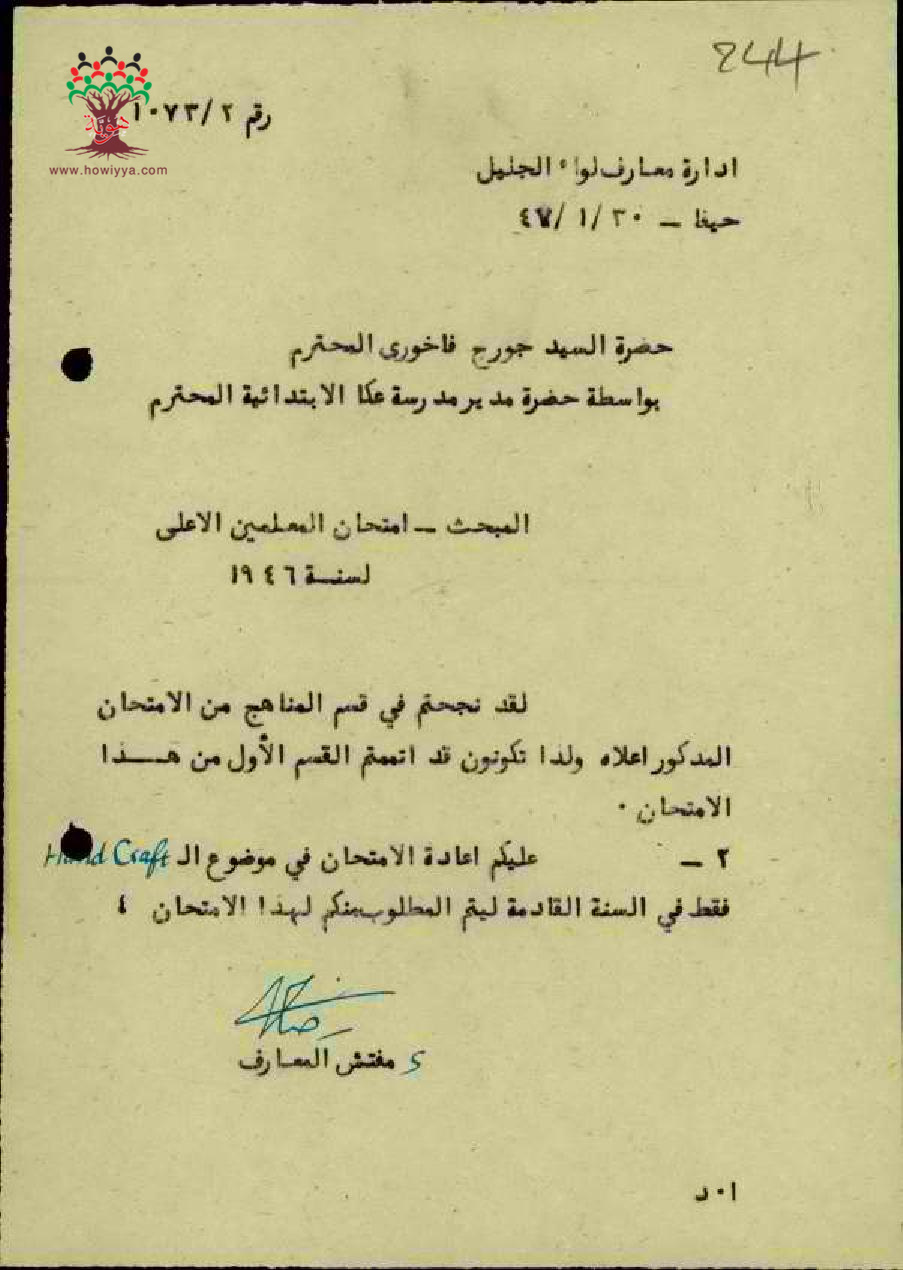 244
رقم ١٠٧٣/٢
هوية
www.howiyya.com
ادارة معارف لواء الجليل
حيفا – ٣٠ /١ /٤٧
حضرة السيد جورج فاخورى المحترم
بواسطة حضرة مدير مدرسة عكا الابتدائية المحترم
المبحث – امتحان المعلمين الاعلى
لسنـة ١٩٤٦
لقد نجحتم في قسم المناهج من الامتحان
المذكور اعلاه ولذا تكونون قد اتممتم القسم الأول من هـــذا
الامتحان ٠
٢ – عليكم اعادة الامتحان في موضوع الـ Hand Craft
فقط في السنة القادمة ليتم المطلوب منكم لهذا الامتحان ٤
مفتش المعارف
ا ٠ د